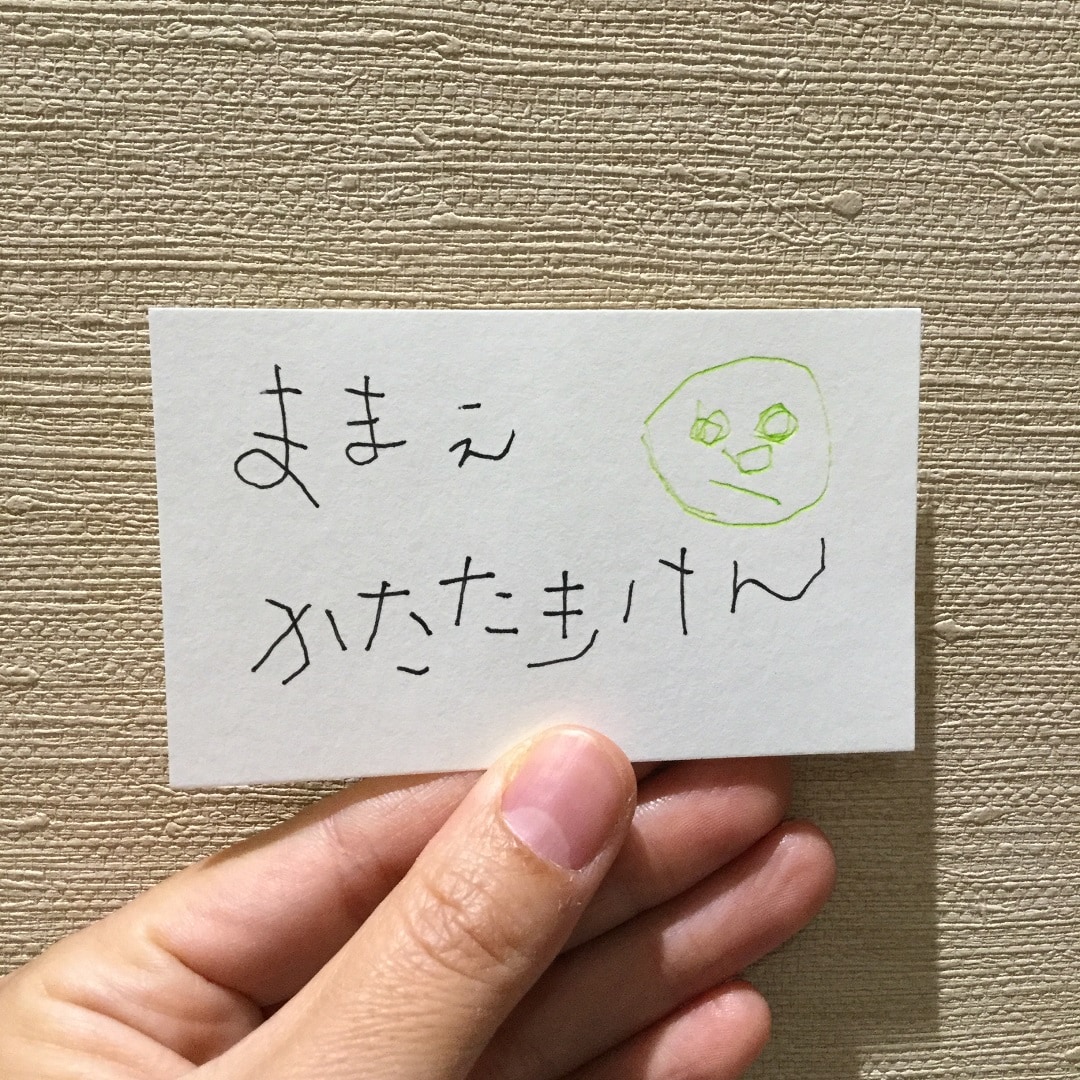 ままえ
かたたきけん